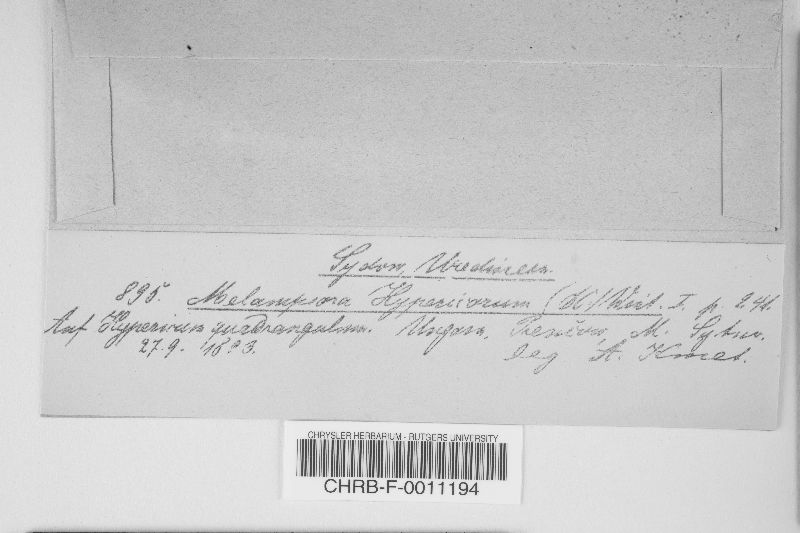 Sydow, Uredineen.
895. Melampsora Hypericorum (DC) Wint. I. p. 241.
Auf Hypericum quadrangulum. Ungarn, Prenčow, M. Sytno.
27.9. 1893. leg A. Kmet.
CHRYSLER HERBARIUM - RUTGERS UNIVERSITY
CHRB-F-0011194